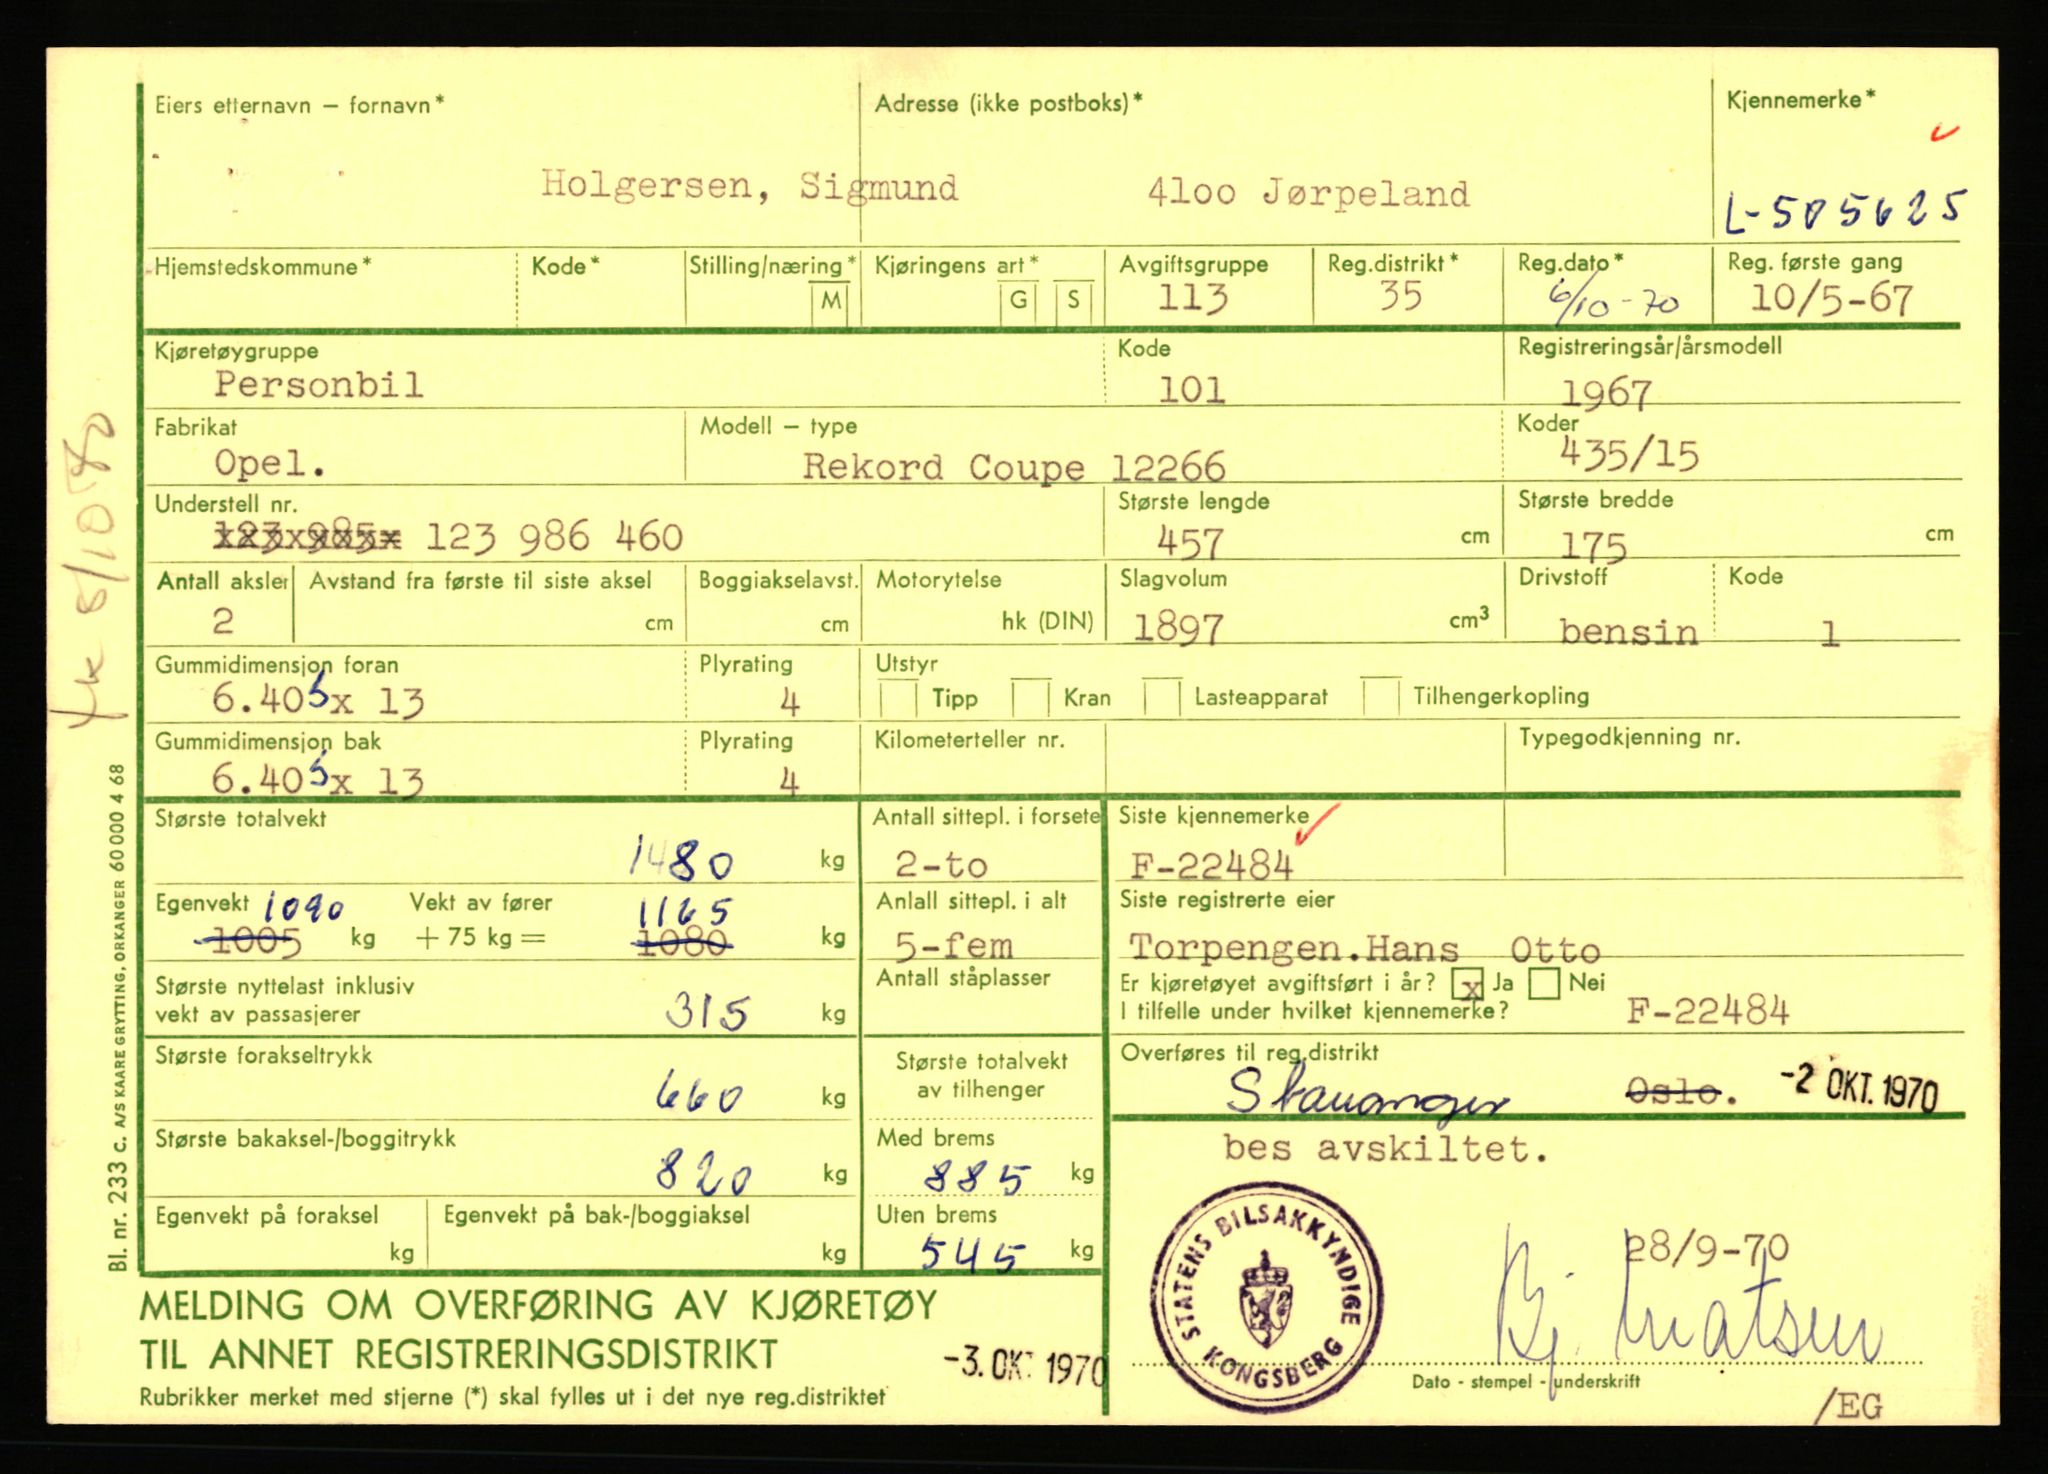 Eiers etternavn – fornavn*
Adresse (ikke postboks)*
Kjennemerke*
Holgersen, Sigmund
4100 Jørpeland
L-505625
Hjemstedskommune*
Kode*
Stilling/næring*
M
Kjøringens art*
G
S
Avgiftsgruppe
113
Reg.distrikt*
35
Reg.dato*
6/10-70
Reg. første gang
10/5-67
Kjøretøygruppe
Personbil
Kode
101
Registreringsår/årsmodell
1967
Fabrikat
Opel.
Modell – type
Rekord Coupe 12266
Koder
435/15
Understell nr.
123 985 123 986 460
Største lengde
457 cm
Største bredde
175 cm
Antall aksler
2
Avstand fra første til siste aksel
cm
Boggiakselavst.
cm
Motorytelse
hk (DIN)
Slagvolum
1897 cm3
Drivstoff
bensin
Kode
1
Gummidimensjon foran
6.40Sx 13
Plyrating
4
Utstyr
Tipp
Kran
Lasteapparat
Tilhengerkopling
Gummidimensjon bak
6.40Sx 13
Plyrating
4
Kilometerteller nr.
Typegodkjenning nr.
Største totalvekt
1480 kg
Antall sittepl. i forsete
2-to
Siste kjennemerke
F-22484
Egenvekt 1090
1005 kg
Vekt av fører
+ 75 kg =
1165
1080 kg
Anlall sittepl. i alt
5-fem
Siste registrerte eier
Torpengen.Hans Otto
Største nyttelast inklusiv
vekt av passasjerer
315 kg
Antall ståplasser
Er kjøretøyet avgiftsført i år? x Ja Nei
I tilfelle under hvilket kjennemerke? F-22484
Største forakseltrykk
660 kg
Største totalvekt
av tilhenger
Overføres til reg.distrikt
Stavanger Oslo. -2 OKT. 1970
Største bakaksel-/boggitrykk
820 kg
Med brems
885 kg
bes avskiltet.
Egenvekt på foraksel
kg
Egenvekt på bak-/boggiaksel
kg
Uten brems
545 kg
STATENS BILSAKKYNDIGE
KONGSBERG
28/9-70
MELDING OM OVERFØRING AV KJØRETØY
TIL ANNET REGISTRERINGSDISTRIKT
-3. OKT 1970
Rubrikker merket med stjerne (*) skal fylles ut i det nye reg.distriktet
Dato - stempel - underskrift
/EG
Bl. nr. 233 C. A/S KAARE GRYTTING, ORKANGER 60000 4 68